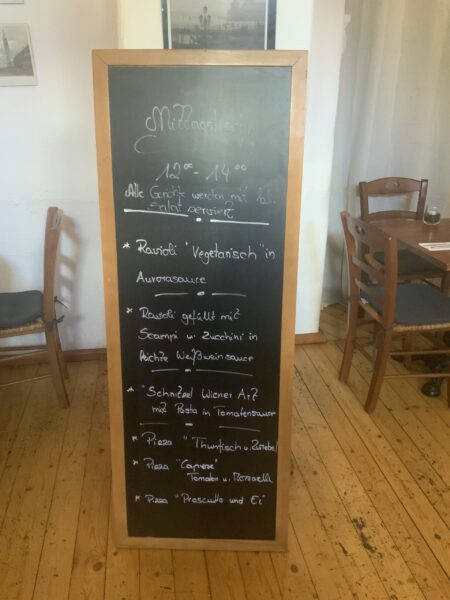 Mittagstisch
12⁰⁰ - 14⁰⁰
Alle Gerichte werden mit
Salat serviert
* Ravioli "Vegetarisch" in
Aurorasauce
* Ravioli gefüllt mit
Scampi u. Zucchini in
leichte Weißweinsauce
* "Schnitzel Wiener Art
mit Pasta in Tomatensauce
* Pizza "Thunfisch u. Zwiebel
* Pizza "Caprese"
Tomaten u. Mozzarella
* Pizza "Prosciutto und Ei"